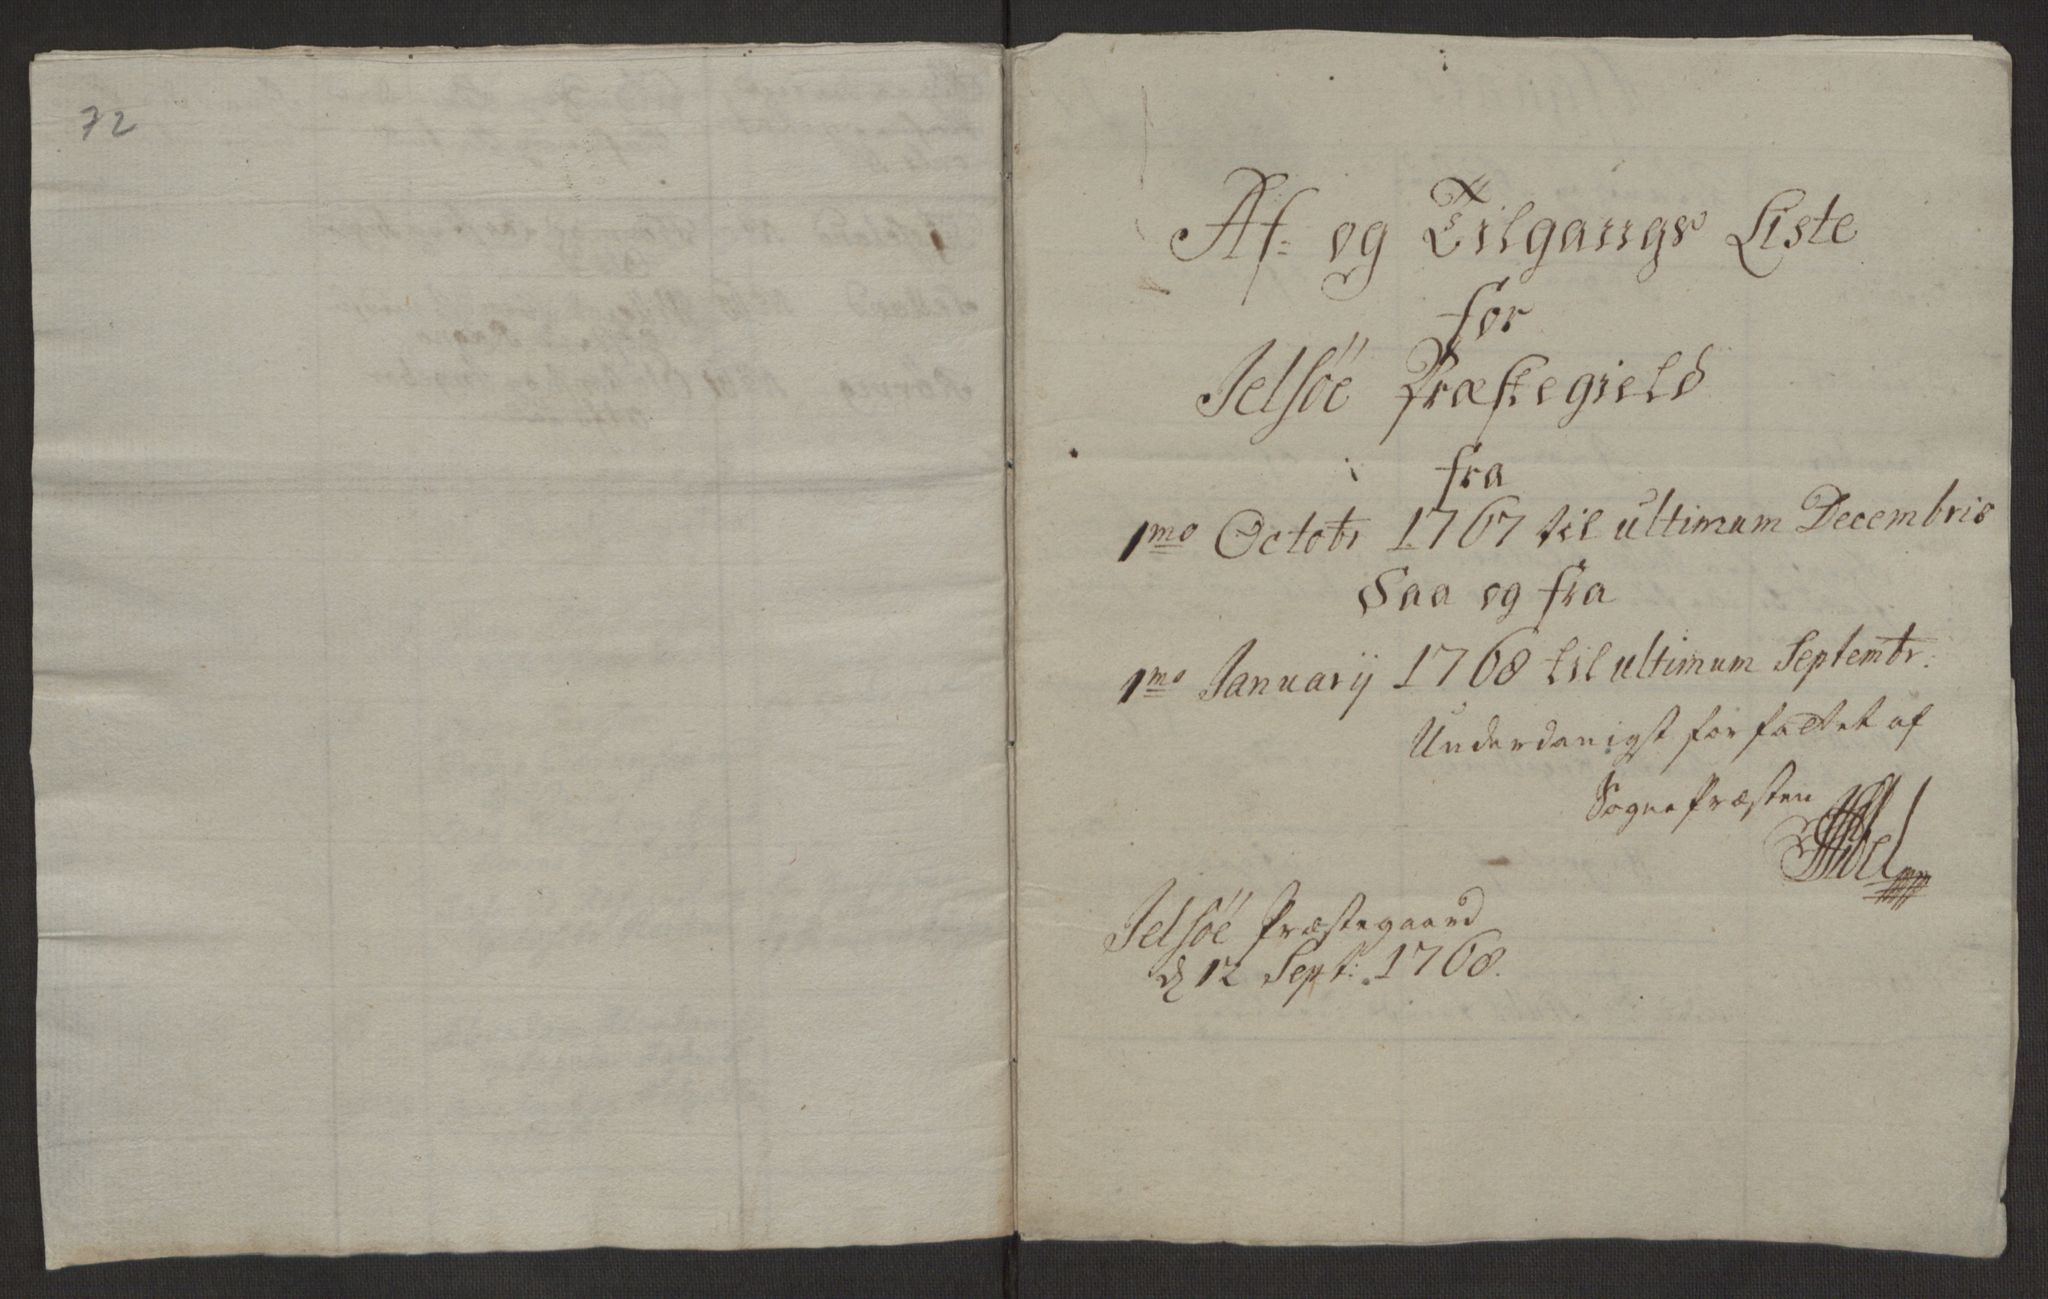 72
Af- og Tilgangs Liste
for
Jelsöe Præstegield
fra
1mo Octobr 1767 til ultimum Decembris
Saa og fra
1mo Januarij 1768 til ultimum Septembr.
Underdanigst forfattet af
Sogne Præsten
Abel
Jelsöe Præstegaard
d 12 Sept: 1768.